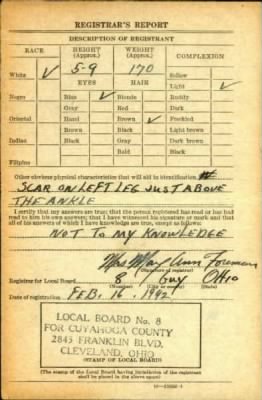 REGISTRAR'S REPORT
DESCRIPTION OF REGISTRANT
RACE HEIGHT (Approx.) WEIGHT (Approx.) COMPLEXION
5-9 170
White ✓ Sallow
EYES HAIR Light ✓
Negro Blue ✓ Blonde Ruddy
Gray Red Dark
Oriental Hazel Brown ✓ Freckled
Brown Black Light brown
Indian Black Gray Dark brown
Bald Black
Filipino
Other obvious physical characteristics that will aid in identification
SCAR ON LEFT LEG JUST ABOVE
THE ANKLE
I certify that my answers are true; that the person registered has read or has had
read to him his own answers; that I have witnessed his signature or mark and that
all of his answers of which I have knowledge are true, except as follows:
NOT TO MY KNOWLEDGE
Mrs Mary Ann Foreman
(Signature of registrar)
Registrar for Local Board 8 Cuy Ohio
(Number) (City or county) (State)
Date of registration FEB. 16. 1942
LOCAL BOARD No. 8
FOR CUYAHOGA COUNTY
2843 FRANKLIN BLVD.
CLEVELAND, OHIO
(STAMP OF LOCAL BOARD)
(The stamp of the Local Board having jurisdiction of the registrant
shall be placed in the above space)